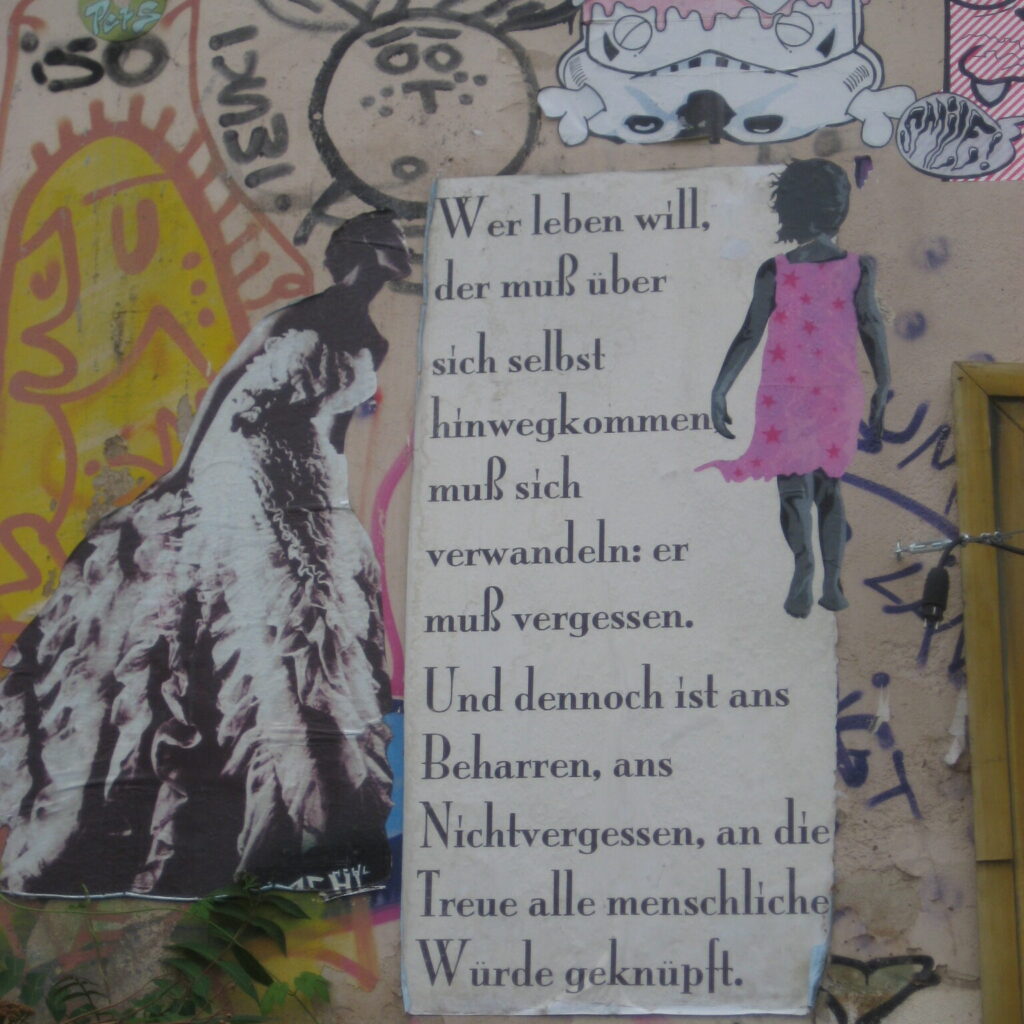 Pets
Wer leben will,
der muß über
sich selbst
hinwegkommen
muß sich
verwandeln: er
muß vergessen.
Und dennoch ist ans
Beharren, ans
Nichtvergessen, an die
Treue alle menschliche
Würde geknüpft.